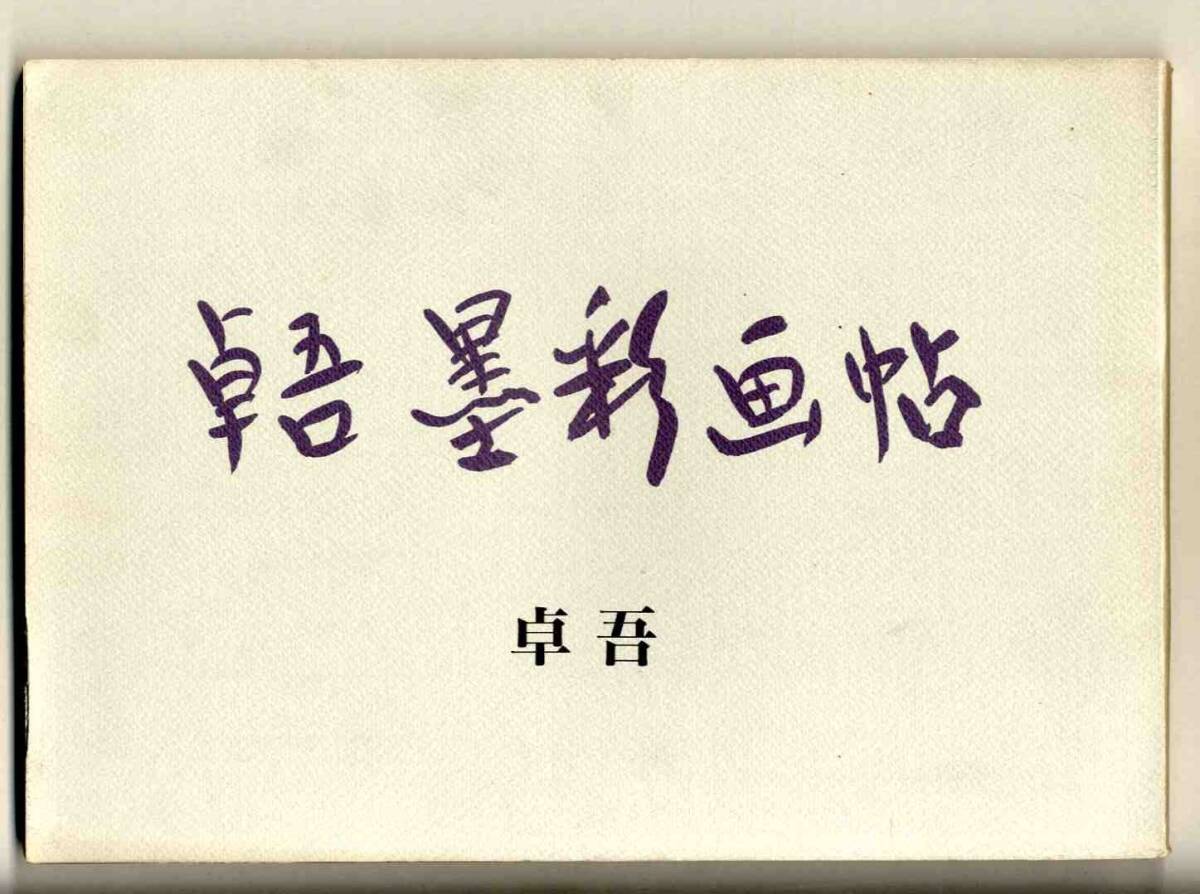 卓吾墨彩画帖
卓吾